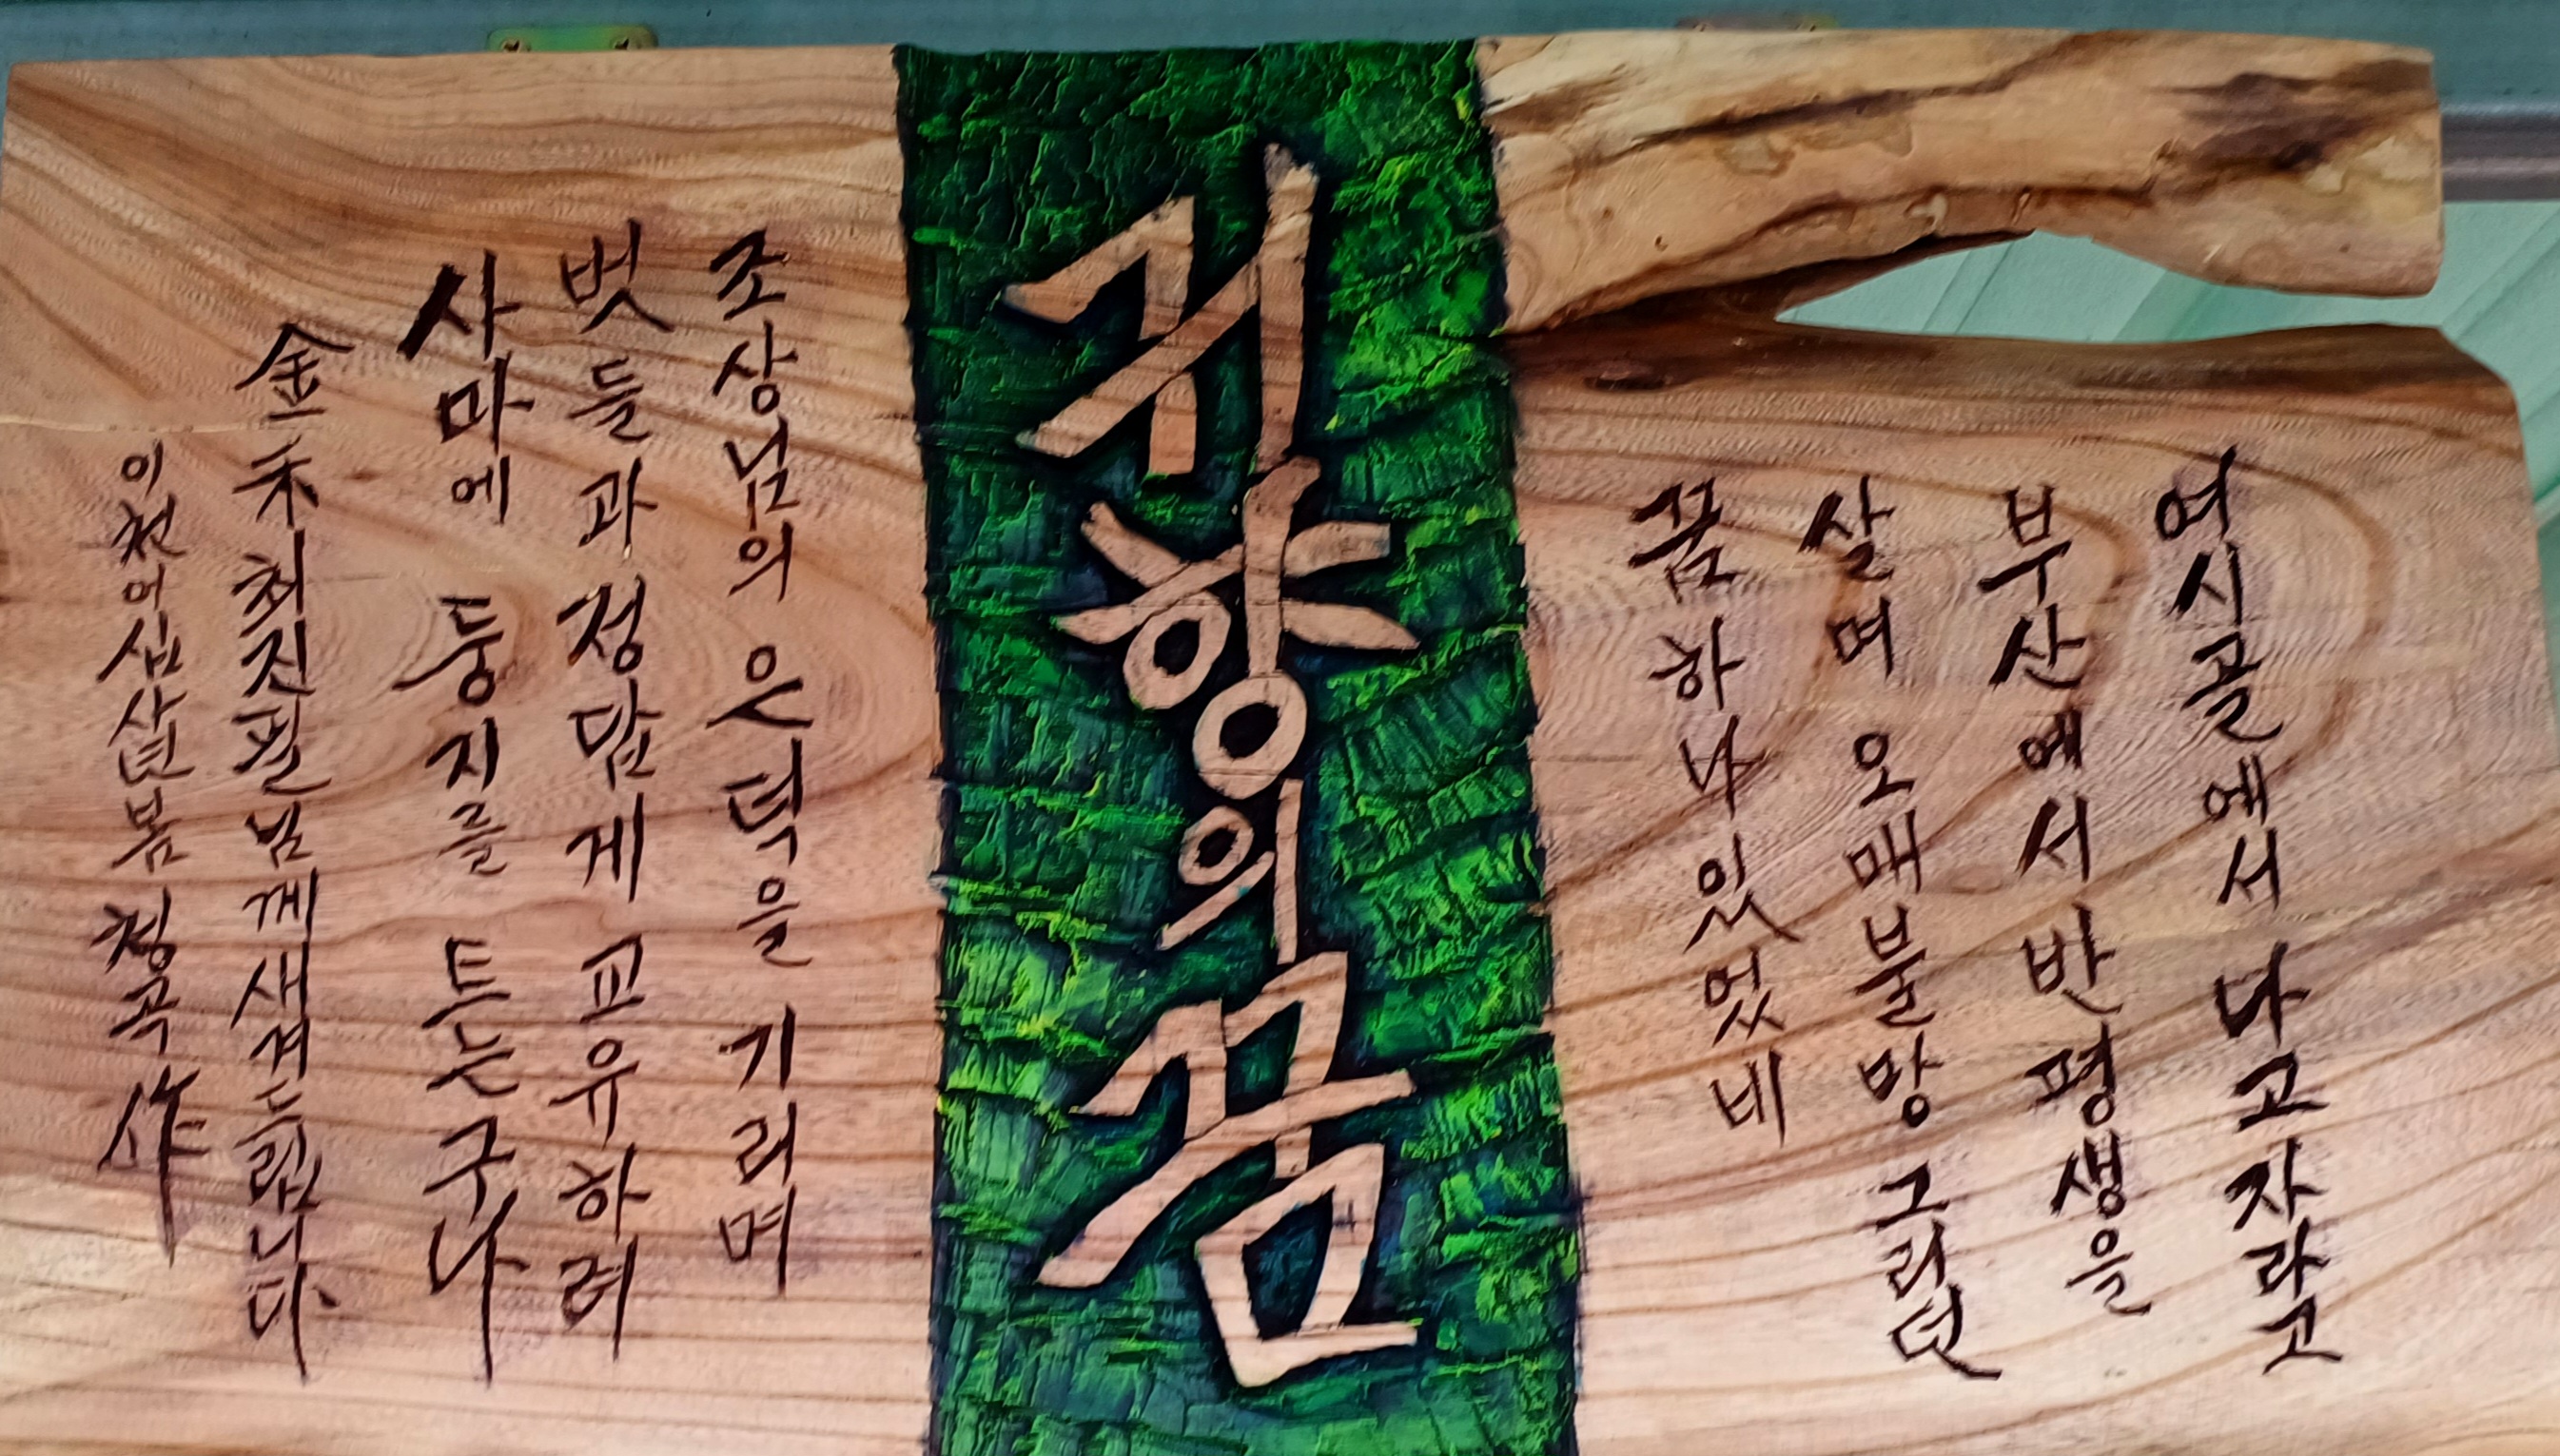 여시골에서 나고 자라고
부산에서 반평생을
살며 오매불망 그리던
꿈 하나 있었네
귀향의 꿈
조상님의 은덕을 기리며
벗들과 정답게 교유하려
사마에 둥지를 트는구나
金禾 최진필님께 새겨드립니다.
이천이십사년봄 청곡 作